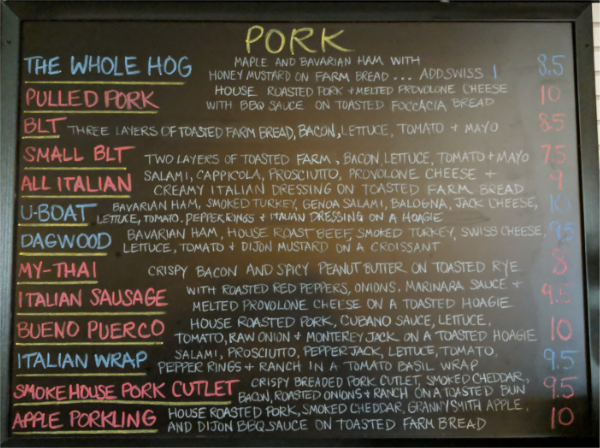 PORK
THE WHOLE HOG MAPLE AND BAVARIAN HAM WITH
HONEY MUSTARD ON FARM BREAD... ADD SWISS 1 8.5
PULLED PORK HOUSE ROASTED PORK + MELTED PROVOLONE CHEESE
WITH BBQ SAUCE ON TOASTED FOCCACIA BREAD 10
BLT THREE LAYERS OF TOASTED FARM BREAD, BACON, LETTUCE, TOMATO + MAYO 8.5
SMALL BLT TWO LAYERS OF TOASTED FARM, BACON, LETTUCE, TOMATO + MAYO 7.5
ALL ITALIAN SALAMI, CAPPICOLA, PROSCIUTTO, PROVOLONE CHEESE +
CREAMY ITALIAN DRESSING ON TOASTED FARM BREAD 9
U-BOAT BAVARIAN HAM, SMOKED TURKEY, GENOA SALAMI, BALOGNA, JACK CHEESE,
LETTUCE, TOMATO, PEPPER RINGS + ITALIAN DRESSING ON A HOAGIE 10
DAGWOOD BAVARIAN HAM, HOUSE ROAST BEEF, SMOKED TURKEY, SWISS CHEESE,
LETTUCE, TOMATO + DIJON MUSTARD ON A CROISSANT 9.5
MY-THAI CRISPY BACON AND SPICY PEANUT BUTTER ON TOASTED RYE 8
ITALIAN SAUSAGE WITH ROASTED RED PEPPERS, ONIONS. MARINARA SAUCE +
MELTED PROVOLONE CHEESE ON A TOASTED HOAGIE 9.5
BUENO PUERCO HOUSE ROASTED PORK, CUBANO SAUCE, LETTUCE,
TOMATO, RAW ONION + MONTEREY JACK ON A TOASTED HOAGIE 10
ITALIAN WRAP SALAMI, PROSCIUTTO, PEPPER JACK, LETTUCE, TOMATO,
PEPPER RINGS + RANCH IN A TOMATO BASIL WRAP 9.5
SMOKEHOUSE PORK CUTLET CRISPY BREADED PORK CUTLET, SMOKED CHEDDAR,
BACON, ROASTED ONIONS + RANCH ON A TOASTED BUN 9.5
APPLE PORKLING HOUSE ROASTED PORK, SMOKED CHEDDAR, GRANNY SMITH APPLE,
AND DIJON BBQ SAUCE ON TOASTED FARM BREAD 10